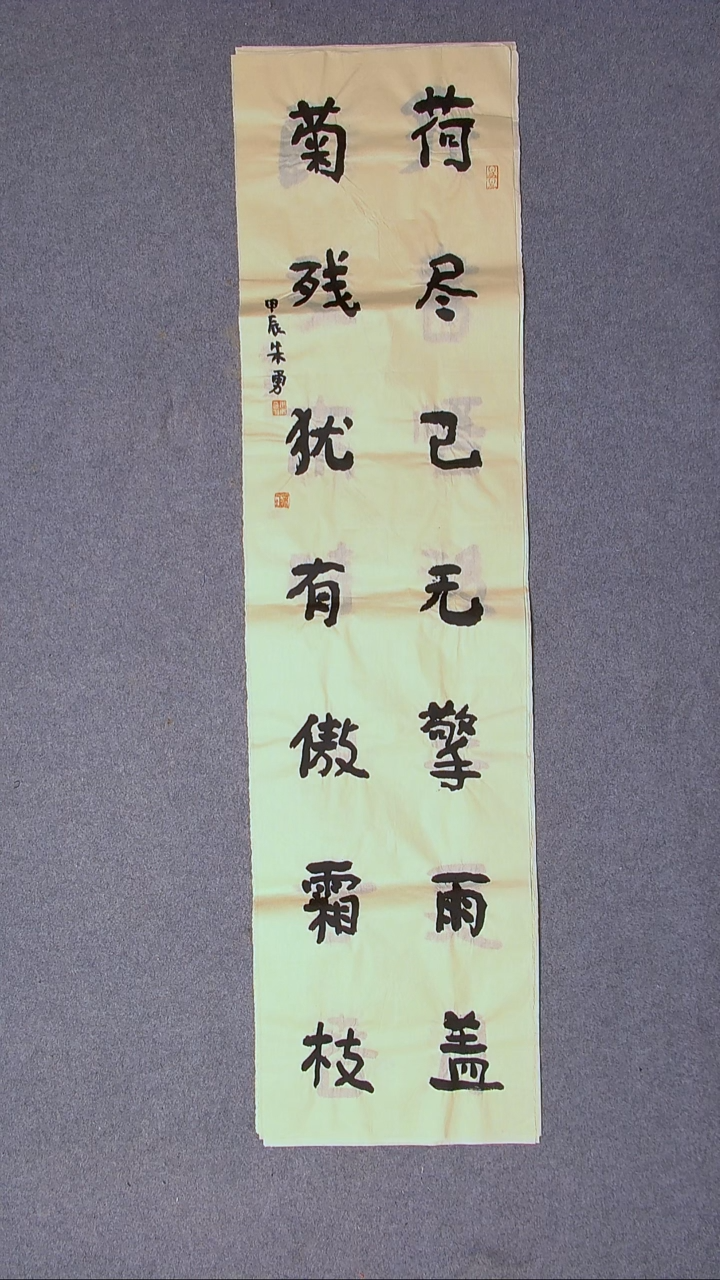 荷尽已无擎雨盖
菊残犹有傲霜枝
甲辰朱勇